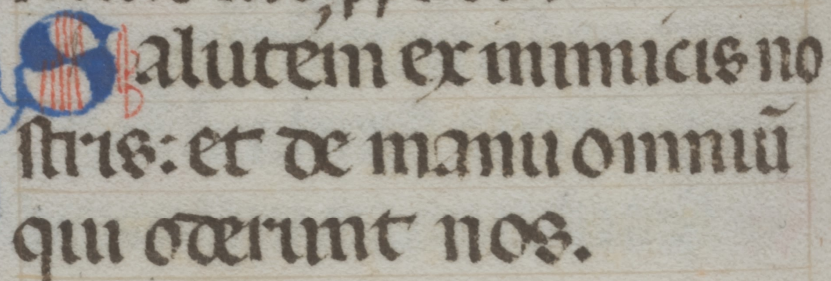 Salutem ex inimicis no
stris: et de manu omniū
qui oderunt nos.